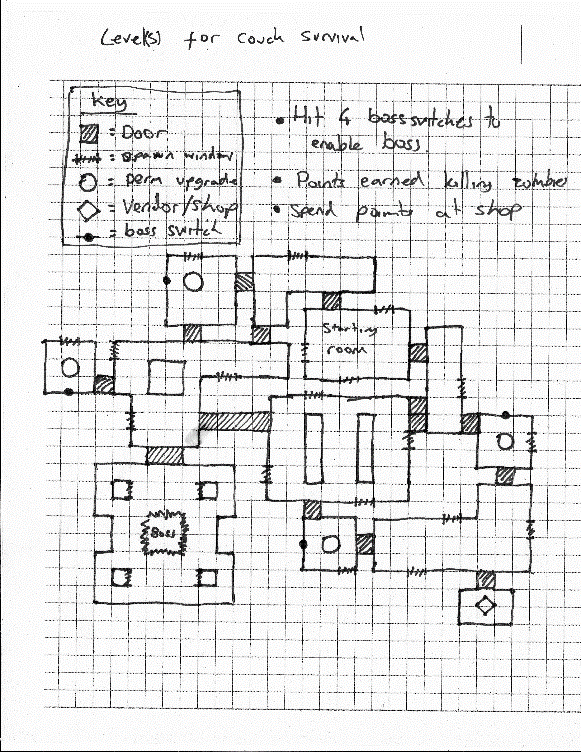 Level(s) for couch survival
Key
= Door
= Spawn window
= perm upgrade
= Vendor/shop
= boss switch
• Hit 4 boss switches to
enable boss
• Points earned killing zombies
• Spend points at shop
Starting
room
Boss